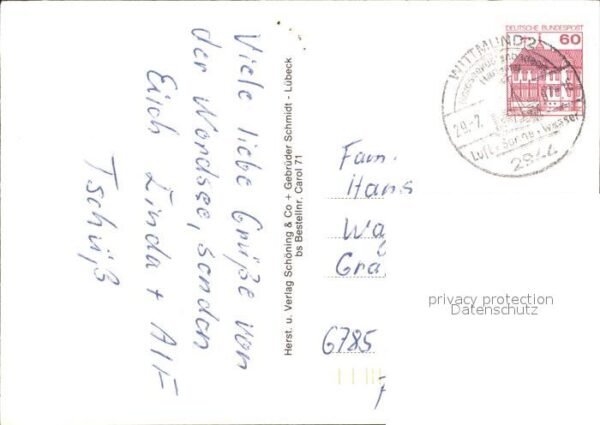 Viele liebe Grüße von
der Nordsee, senden
Euch Linda + Alf
Tschüß
Herst. u. Verlag Schöning & Co + Gebrüder Schmidt - Lübeck
bs Bestellnr. Carol 71
DEUTSCHE BUNDESPOST
60
WITTMUND 2
29.-7.
Luft · Sonne · Wasser
2944
Fam.
Hans
Wa
Gra
6785
privacy protection
Datenschutz